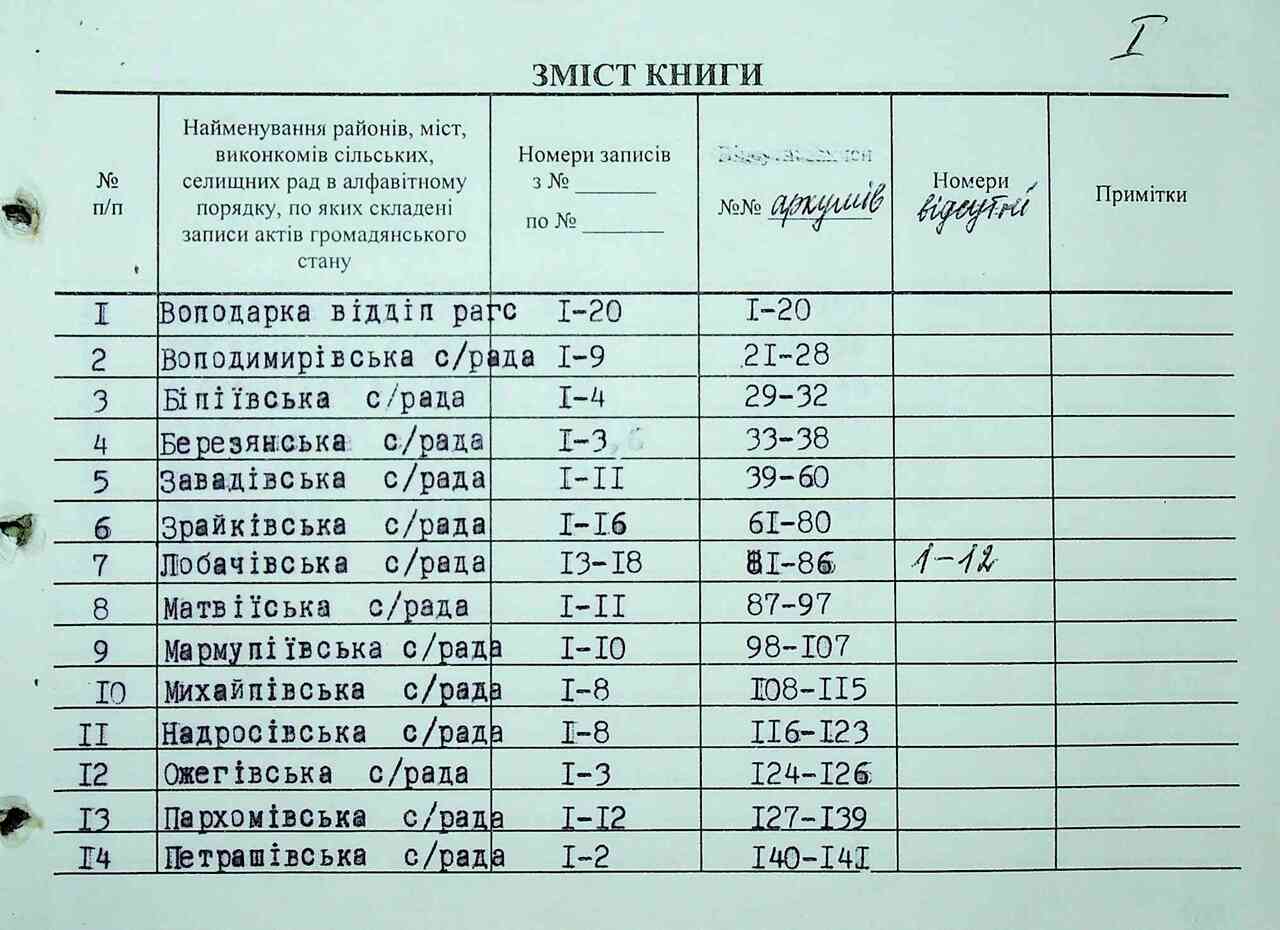 I
ЗМІСТ КНИГИ
№ п/п
Найменування районів, міст,
виконкомів сільських,
селищних рад в алфавітному
порядку, по яких складені
записи актів громадянського
стану
Номери записів
з № ________
по № ________
№№ аркушів
Номери
відсутні
Примітки
I Володарка відділ рагс I-20 I-20
2 Володимирівська с/рада I-9 2I-28
3 Біліївська с/рада I-4 29-32
4 Березянська с/рада I-3,6 33-38
5 Завадівська с/рада I-II 39-60
6 Зрайківська с/рада I-I6 6I-80
7 Лобачівська с/рада I3-I8 8I-86 1-12
8 Матвіїська с/рада I-II 87-97
9 Мармуліївська с/рада I-I0 98-I07
I0 Михайлівська с/рада I-8 I08-II5
II Надросівська с/рада I-8 II6-I23
I2 Ожегівська с/рада I-3 I24-I26
I3 Пархомівська с/рада I-I2 I27-I39
I4 Петрашівська с/рада I-2 I40-I4I